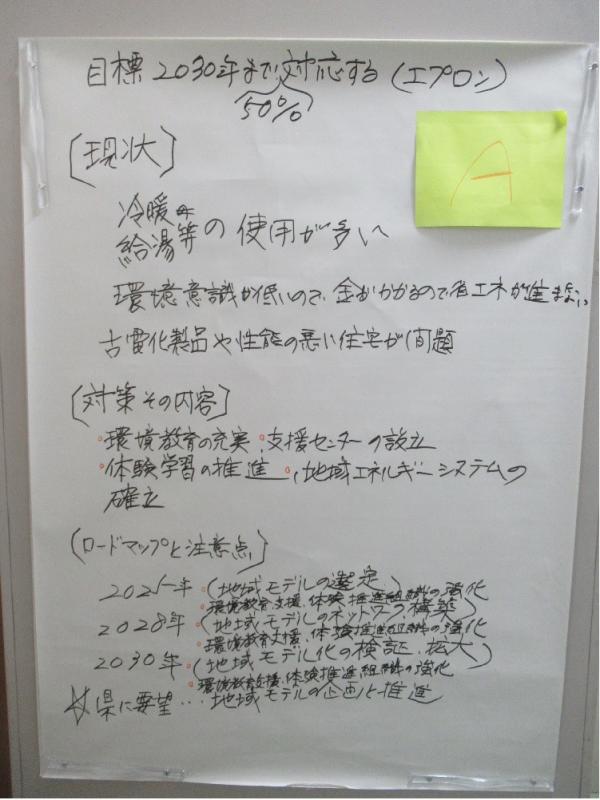 目標 2030年まで対応する(エプロン)
50%
A
[現状]
冷暖や
給湯等の使用が多い
環境意識が低いので、金がかかるので省エネが進まない。
古電化製品や性能の悪い住宅が問題
[対策その内容]
・環境教育の充実 ・支援センターの設立
・体験学習の推進 ・地域エネルギーシステムの
確立
(ロードマップと注意点)
2025年・(地域モデルの選定)
環境教育、支援、体験推進組織の強化
2028年・(地域モデルのネットワーク構築)
環境教育支援・体験推進組織の強化
2030年・(地域モデル化の検証、拡大)
・環境教育支援、体験推進組織の強化
☆県に要望…地域モデルの企画と推進